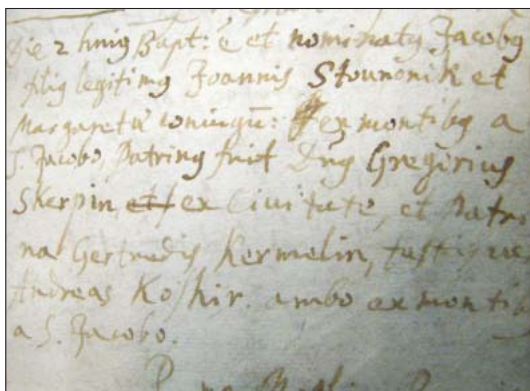 Die 2 huig Bapt: ē et nominatg Jacobg
filig legitimg Joannis Stounonik et
Margaretæ coniugū: ex montibg a
S. Jacobo, Patring fuit Dng Gregorius
Skerpin, et ex Ciuitate, et Patri
na Gertrudis Kermelin, testigue
Andreas Koshir. ambo ex montib
a S. Jacobo.